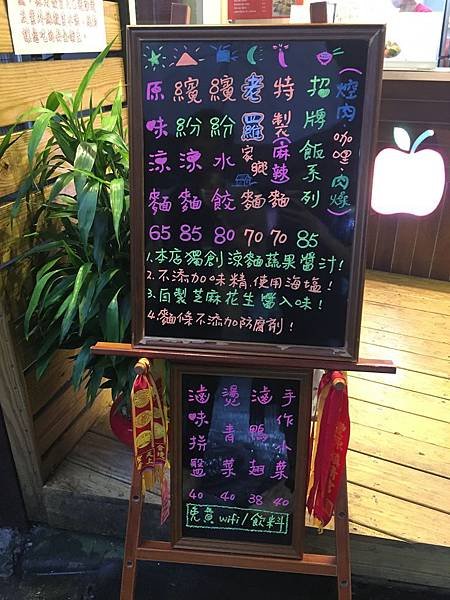 招牌飯系列(焢肉 咖哩·肉燥) 85
特製(麻辣麵 70
老羅家鄉麵 70
繽紛水餃 80
繽紛涼麵 85
原味涼麵 65
1.本店獨創涼麵蔬果醬汁!
2.不添加味精,使用海塩!
3.自製芝麻花生醬入味!
4.麵條不添加防腐劑!
手作小菜 40
滷鴨翅 38
燙青菜 40
滷味拼盤 40
免費wifi/飲料